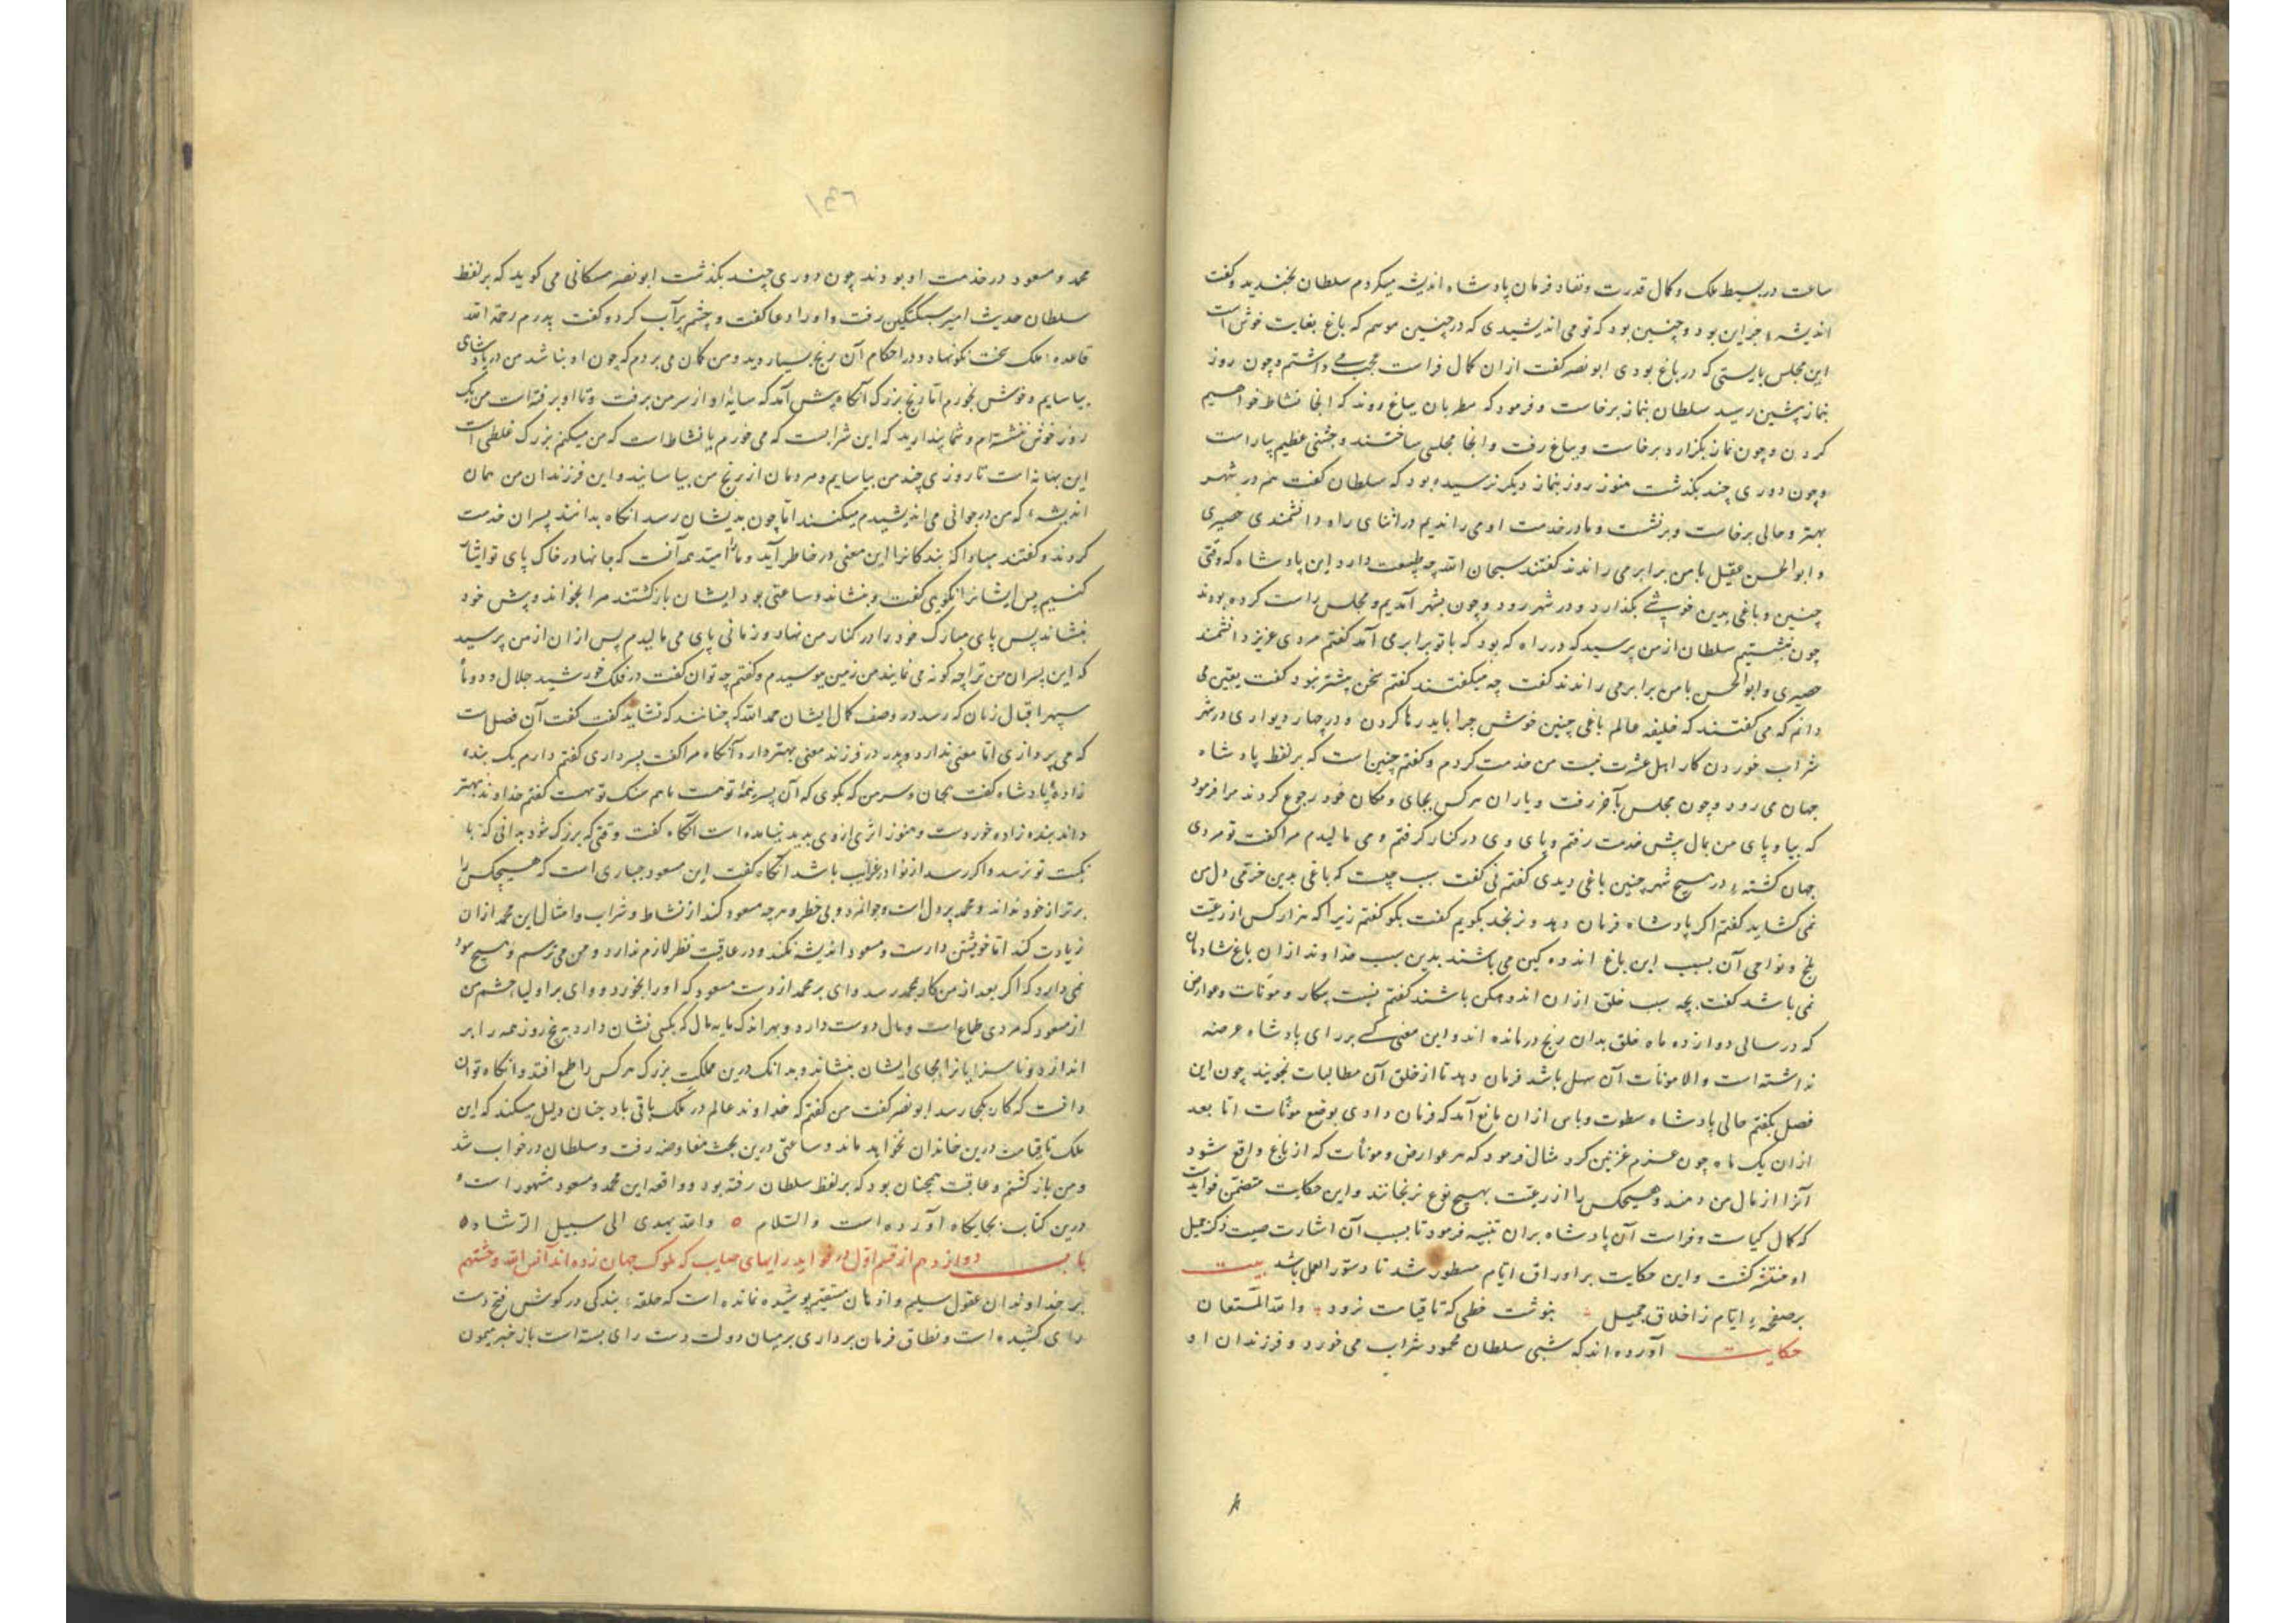 ساعت در بسیط ملک و کمال قدرت و نفاد فرمان پادشاه اندیشه میکردم سلطان بخندید و گفت
اندیشهٔ جزاین بود و چنین بود که تو می اندیشیدی که در چنین موسم که باغ بغایت خوش است
این مجلس بایستی که در باغ بودی ابو نصر گفت ازان کمال فراست عجب می داشتم و چون روز
بنماز پیشین رسید سلطان بنماز برخاست و فرمود که مطربان بباغ روند که انجا نشاط خواهیم
کردن و چون نماز بگزارد برخاست و بباغ رفت و انجا مجلسی ساختند و جشنی عظیم بیاراست
و چون دوری چند بگذشت هنوز روز بنماز دیگر نرسیده بود که سلطان گفت هم در شهر
بهتر و حالی برخاست و برنشست و ما در خدمت او می راندیم در اثنای راه دانشمندی حصیری
و ابوالحسن عقیل با من برابر می راندند گفتند سبحان الله چه طبیعت دارد این پادشاه که وقتی
چنین و باغی بدین خوشی بگذارد و در شهر رود و چون بشهر آمدیم و مجلس راست کرده بودند
چون بنشستیم سلطان از من پرسید که در راه که بود که با تو برابر می آمد گفتم مردی عزیز دانشمند
حصیری و ابوالحسن با من برابر می راندند گفت چه میگفتند گفتم سخن پیشتر نبود گفت یقین می
دانم که می گفتند که خلیفه عالم باغی چنین خوش چرا باید رها کردن و در چهار دیواری در شهر
شراب خوردن کار اهل عشرت نیست من خدمت کردم و گفتم چنین است که بر لفظ پادشاه
جهان می رود و چون مجلس بآخر رفت و یاران هر کس بجای و مکان خود رجوع کردند مرا فرمود
که بیا و پای من بمال پیش خدمت رفتم و پای وی در کنار گرفتم و می مالیدم مرا گفت تو مردی
جهان کشتهٔ در هیچ شهر چنین باغی دیدی گفتم نی گفت سبب چیست که باغی بدین خرمی دل من
نمی کشاید گفتم اگر پادشاه فرمان دهد و نرنجد بگویم گفت بگو گفتم زیرا که هزار کس از رعیت
بلخ و نواحی آن بسبب این باغ اندوه کین می باشند بدین سبب خداوند ازان باغ شادمان
نمی باشد گفت بچه سبب خلق ازان اندوهکن باشند گفتم بسبب بیکار و موٴنات و عوارض
که در سالی دوازده ماه خلق بدان رنج درمانده اند و این معنی کسی بر رای پادشاه عرضه
نداشته است و الا موٴنات آن سهل باشد فرمان دهد تا از خلق آن مطالبات نجویند چون این
فصل بگفتم حالی پادشاه سطوت و باس ازان مانع آمد که فرمان دادی بوضع موٴنات اما بعد
ازان یک ماه چون عزم غزنین کرد مثال فرمود که هر عوارض و موٴنات که از باغ واقع شود
آنرا از مال من دهند و هیچکس را از رعیت بهیچ نوع نرنجانند و این حکایت متضمن فوایدست
که کمال کیاست و فراست آن پادشاه بران تنبیه فرمود تا بسبب آن اشارت صیت ذکر جمیل
او منتشر گشت و این حکایت بر اوراق ایام مسطور شد تا دستور العمل باشد بیت
بر صفحهٔ ایام ز اخلاق جمیل بنوشت خطی که تا قیامت نرود والله المستعان
حکایت آورده اند که شبی سلطان محمود شراب می خورد و فرزندان او
محمد و مسعود در خدمت او بودند چون دوری چند بگذشت ابو نصر مسکانی می کوید که بر لفظ
سلطان حدیث امیر سبکتگین رفت و اورا دعا گفت و چشم پر آب کرد و گفت پدرم رحمة الله
قاعدهٔ ملک سخت نکو نهاد و در احکام آن رنج بسیار دید و من کمان می بردم که چون او نباشد من در پادشاهی
بیاسایم و خوش بخورم اما رنج بزرک آنگاه پیش آمد که سایهٔ او از سر من برفت و تا او برفته است من یک
روز خوش ننشسته ام و شما پندارید که این شرابست که می خورم یا نشاط است که من میکنم بزرک غلطی است
این بهانه است تا روزی چند من بیاسایم و مردمان از رنج من بیاسایند و این فرزندان من همان
اندیشهٔ که من در جوانی می اندیشیدم میکنند اما چون بدیشان رسد انگاه بدانند پسران خدمت
کردند و گفتند مبادا که بندگانرا این معنی در خاطر آید و ما را امید همه آنست که جانها در خاک پای تو ایثار
کنیم پس ایشانرا نکویی گفت و بنشاند و ساعتی بود ایشان بازگشتند مرا بخواند و پیش خود
بنشاند پس پای مبارک خود را در کنار من نهاد و زمانی پای می مالیدم پس ازان از من پرسید
که این پسران من ترا چه گونه می نمایند من زمین ببوسیدم و گفتم چه توان گفت در فلک خورشید جلال و دو ماه
سپهر اقبال زبان که رسد در وصف کمال ایشان بحمد الله که چنانند که نشاید گفت گفت آن فصل است
که می پردازی اما معنی ندارد و پدر در فرزند معنی بهتر دارد آنگاه مرا گفت پسر داری گفتم دارم یک بنده
زادهٔ پادشاه گفت بجان و سر من که بگوی که آن پسر همتای تو هست یا هم سنک تو هست گفتم خداوند بهتر
داند بنده زاده خوردست و هنوز اثری ازوی پدید نیامده است انگاه گفت وقتی که بزرک شود بدانی که با
نکست تو نرسد و اگر رسد از نوادر غرایب باشد آنگاه گفت این مسعود جباری است که هیچکس را
برتر از خود نداند و محمد پر دل است و جوانمرد و بی خطر و هرچه مسعود کند از نشاط و شراب و امثال این محمد ازان
زیادت کند اما خویشتن دارست و مسعود اندیشه نکند و در عاقبت نظر لازم ندارد و من می ترسم و هیچ سود
نمی دارد که اگر بعد از من کار بمحمد رسد وای بر محمد از دست مسعود که اورا بخورد و وای بر اولیا و حشم من
از مسعود که مردی طماع است و مال دوست دارد و بهر اندک مایه مال که بکسی نشان دارد به پنج روز همه را بر
اندازد و ناسزایانرا بجای ایشان بنشاند و بدانک درین مملکت بزرک هر کس را طمع افتد و انگاه توان
دانست که کار بکجا رسد ابو نصر گفت من گفتم که خداوند عالم در ملک باقی باد چنان دلیل میکند که این
ملک تا قیامت درین خاندان بخواهد ماند و ساعتی درین بحث مفاوضه رفت و سلطان در خواب شد
و من باز گشتم و عاقبت همچنان بود که بر لفظ سلطان رفته بود و واقعه این محمد و مسعود مشهور است و
درین کتاب بجایگاه آورده است والسلام ٥ والله یهدی الی سبیل الرشاد ٥
باب دوازدهم از قسم اول در فواید رایهای صایب که ملوک جهان زده اند
بر خداوندان عقول سلیم و اذهان مستقیم پوشیده نمانده است که حلقهٔ بندگی در گوش فتح دست
رای کشیده است و نطاق فرمان برداری بر میان دولت دست رای بسته است باز خبر میمون